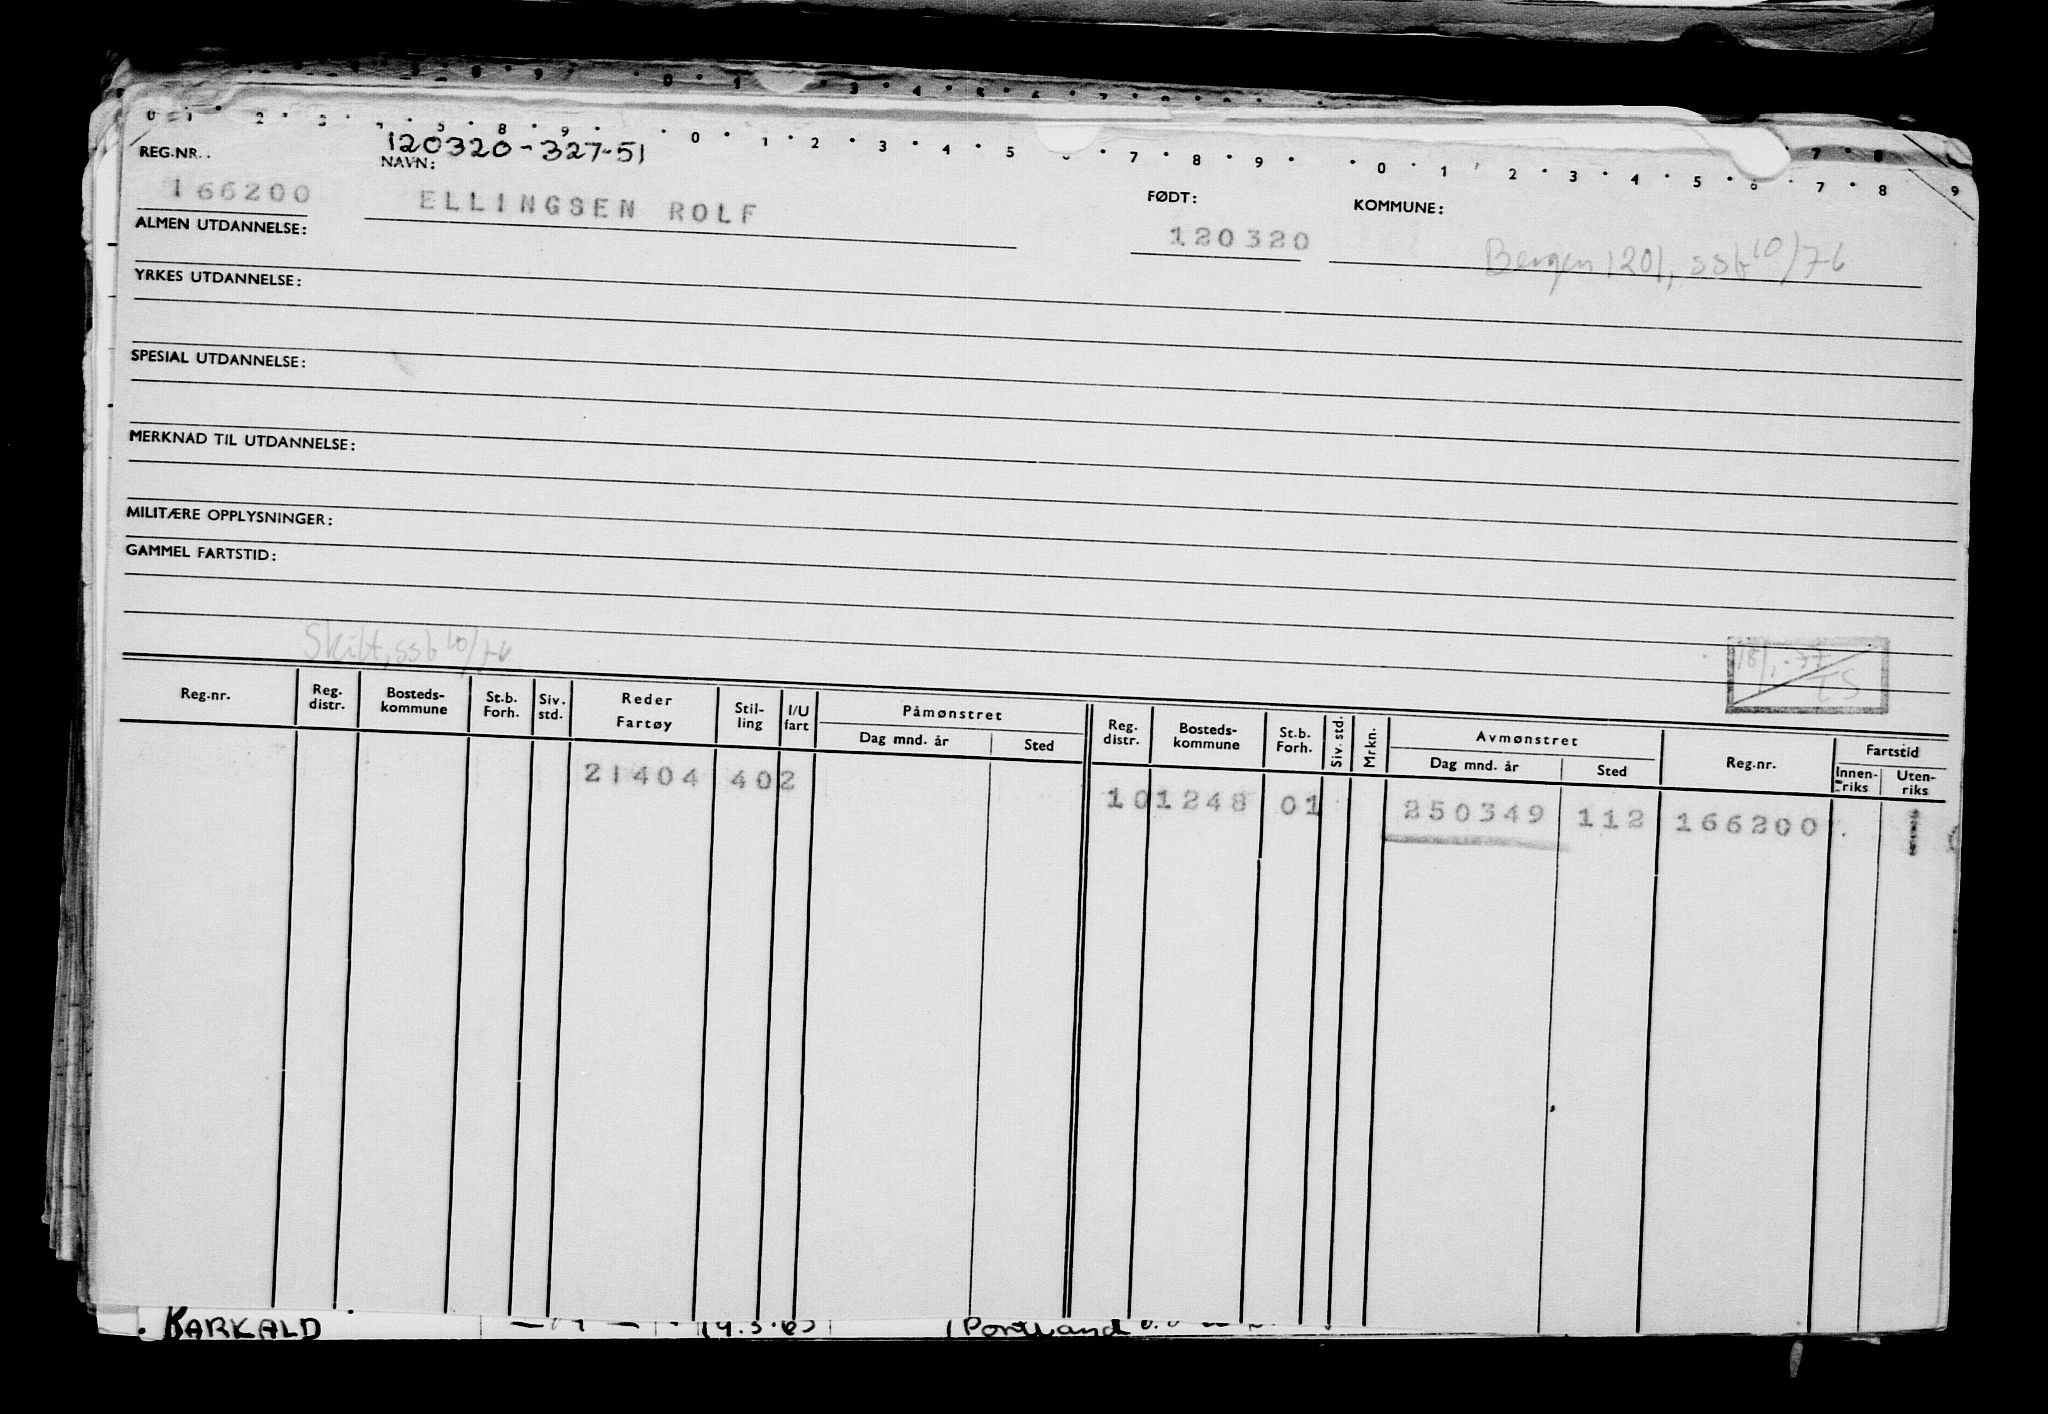 120320-327-51
REG.NR.: NAVN: FØDT: KOMMUNE:
166200 ELLINGSEN ROLF 120320 Bergen 1201, ssb 10/76
ALMEN UTDANNELSE:
YRKES UTDANNELSE:
SPESIAL UTDANNELSE:
MERKNAD TIL UTDANNELSE:
MILITÆRE OPPLYSNINGER:
GAMMEL FARTSTID:
Skilt, ssb 10/76
Reg.nr. Reg. distr. Bosteds-kommune St.b. Forh. Siv. std. Reder Fartøy Stil-ling I/U fart Påmønstret Dag mnd. år Sted Reg. distr. Bosteds-kommune St.b. Forh. Siv. std. Mrkn. Avmønstret Dag mnd. år Sted Reg.nr. Fartstid Innen-riks Uten-riks
21404 402 101248 01 250349 112 166200
KARKALD
(Portland